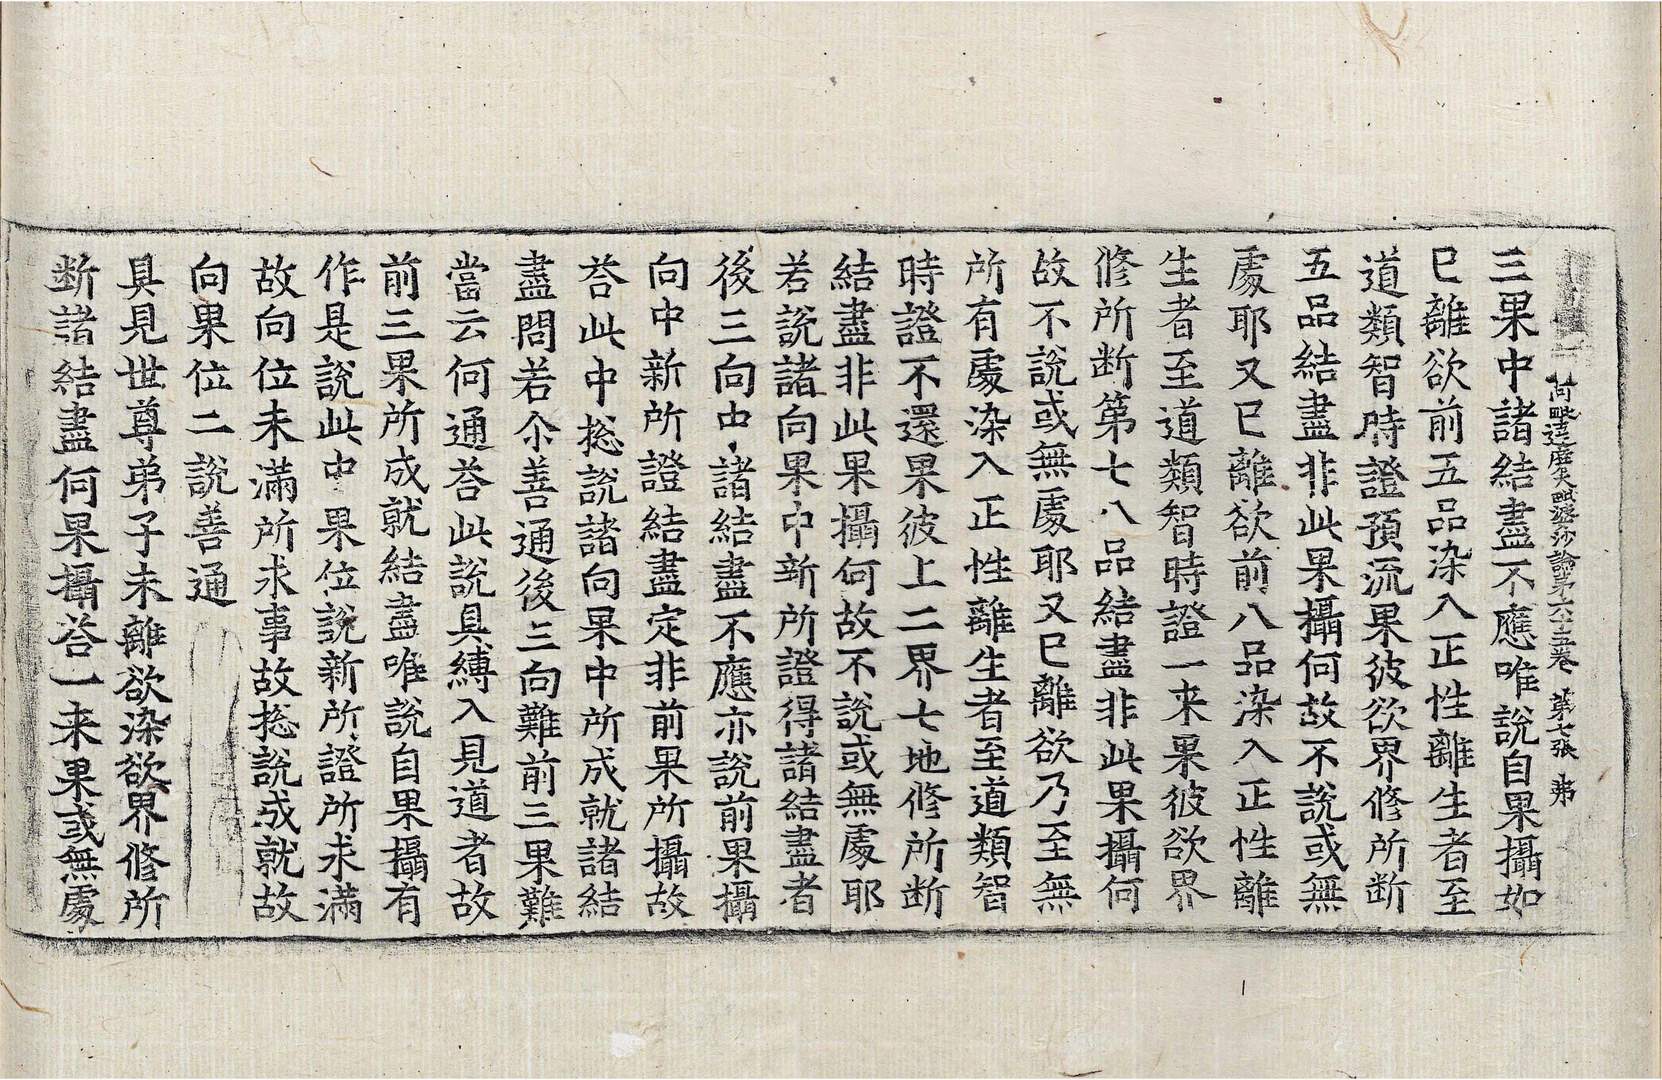 阿毗達磨大毗婆沙論第六十五卷 第七張 弗
三果中諸結盡不應唯說自果攝如
已離欲前五品染入正性離生者至
道類智時證預流果彼欲界修所断
五品結盡非此果攝何故不說或無
處耶又已離欲前八品染入正性離
生者至道類智時證一来果彼欲界
修所断第七八品結盡非此果攝何
故不說或無處耶又已離欲乃至無
所有處染入正性離生者至道類智
時證不還果彼上二界七地修所断
結盡非此果攝何故不說或無處耶
若說諸向果中新所證得諸結盡者
後三向中諸結盡不應亦說前果攝
向中新所證結盡定非前果所攝故
荅此中揔說諸向果中所成就諸結
盡問若尒善通後三向難前三果難
當云何通荅此說具縛入見道者故
前三果所成就結盡唯說自果攝有
作是說此中果位說新所證所求滿
故向位未滿所求事故揔說成就故
向果位二說善通
具見世尊弟子未離欲染欲界修所
断諸結盡何果攝荅一来果或無處